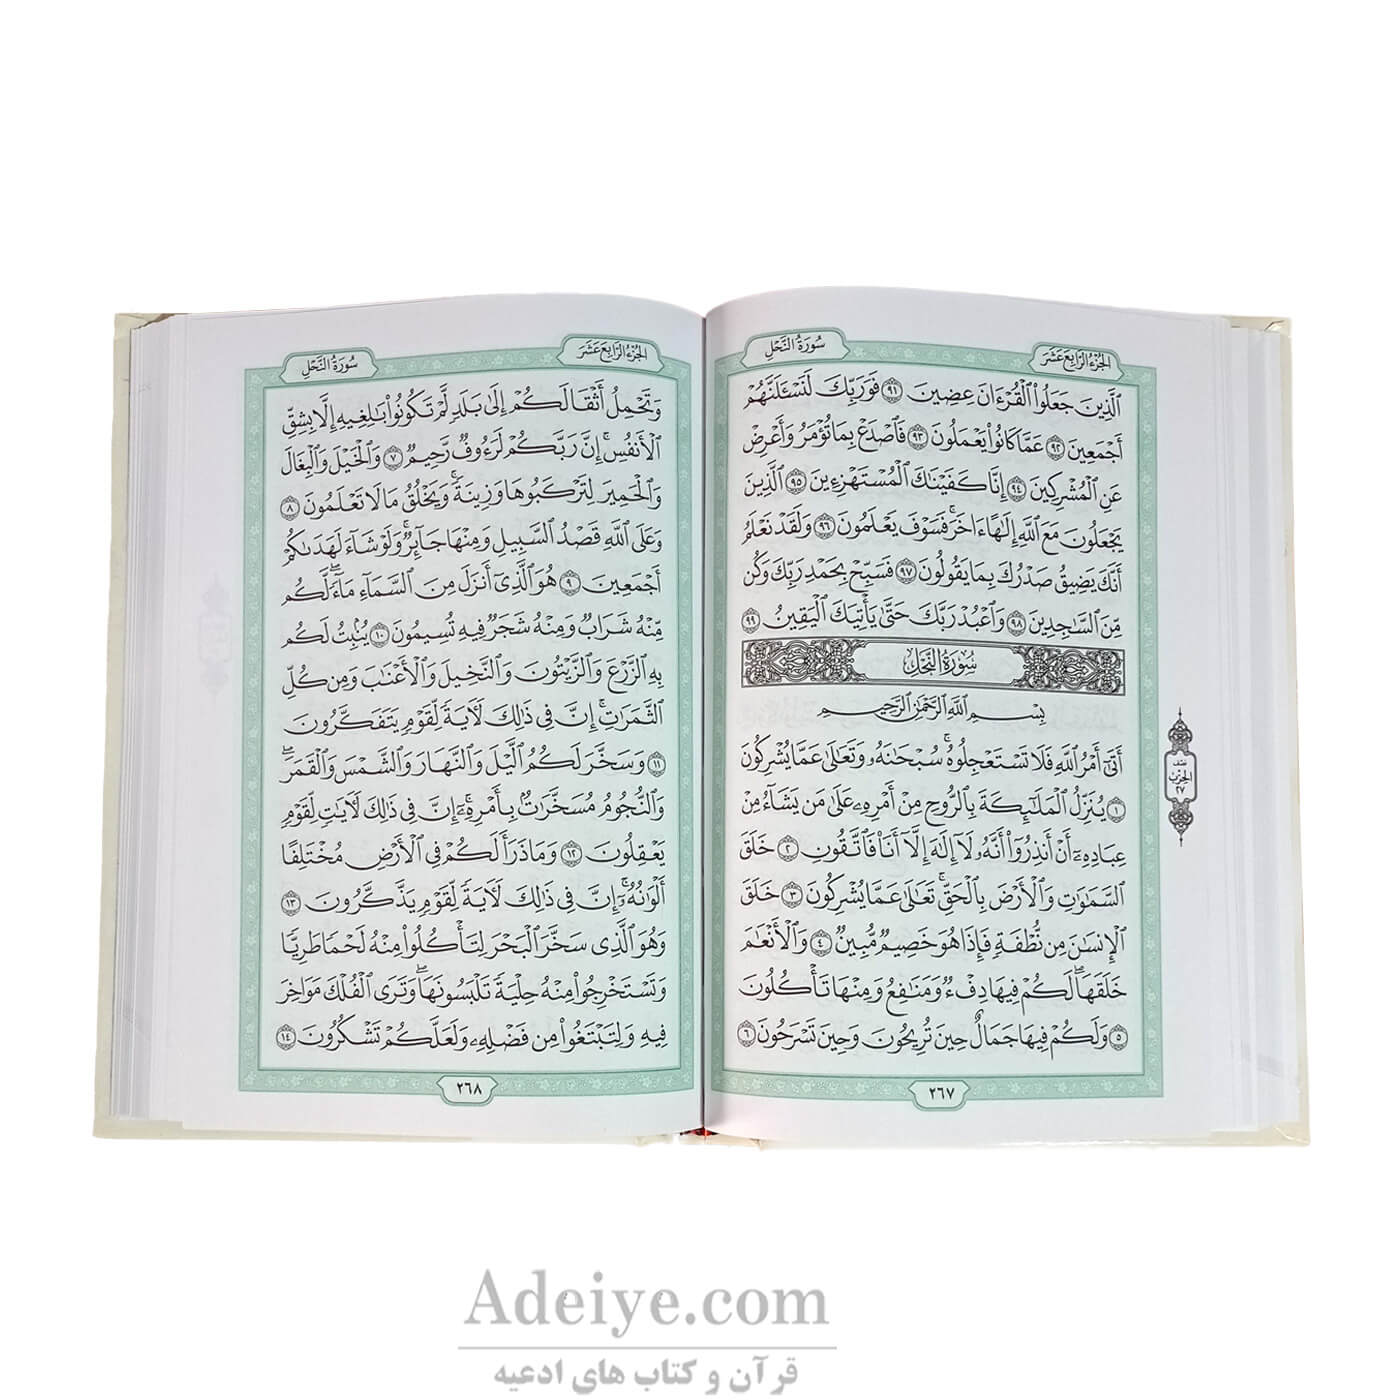 سُورَةُ النَّحْلِ
الجُزْءُ الرَّابِعَ عَشَرَ
الَّذِينَ جَعَلُوا۟ الْقُرْءَانَ عِضِينَ ٩١ فَوَرَبِّكَ لَنَسْـَٔلَنَّهُمْ
أَجْمَعِينَ ٩٢ عَمَّا كَانُوا۟ يَعْمَلُونَ ٩٣ فَاصْدَعْ بِمَا تُؤْمَرُ وَأَعْرِضْ
عَنِ الْمُشْرِكِينَ ٩٤ إِنَّا كَفَيْنَٰكَ الْمُسْتَهْزِءِينَ ٩٥ الَّذِينَ
يَجْعَلُونَ مَعَ اللَّهِ إِلَٰهًا ءَاخَرَ ۚ فَسَوْفَ يَعْلَمُونَ ٩٦ وَلَقَدْ نَعْلَمُ
أَنَّكَ يَضِيقُ صَدْرُكَ بِمَا يَقُولُونَ ٩٧ فَسَبِّحْ بِحَمْدِ رَبِّكَ وَكُن
مِّنَ السَّٰجِدِينَ ٩٨ وَاعْبُدْ رَبَّكَ حَتَّىٰ يَأْتِيَكَ الْيَقِينُ ٩٩
سُورَةُ النَّحْلِ
بِسْمِ اللَّهِ الرَّحْمَٰنِ الرَّحِيمِ
أَتَىٰٓ أَمْرُ اللَّهِ فَلَا تَسْتَعْجِلُوهُ ۚ سُبْحَٰنَهُۥ وَتَعَٰلَىٰ عَمَّا يُشْرِكُونَ
١ يُنَزِّلُ الْمَلَٰٓئِكَةَ بِالرُّوحِ مِنْ أَمْرِهِۦ عَلَىٰ مَن يَشَآءُ مِنْ
عِبَادِهِۦٓ أَنْ أَنذِرُوٓا۟ أَنَّهُۥ لَآ إِلَٰهَ إِلَّآ أَنَا۠ فَاتَّقُونِ ٢ خَلَقَ
السَّمَٰوَٰتِ وَالْأَرْضَ بِالْحَقِّ ۚ تَعَٰلَىٰ عَمَّا يُشْرِكُونَ ٣ خَلَقَ
الْإِنسَٰنَ مِن نُّطْفَةٍ فَإِذَا هُوَ خَصِيمٌ مُّبِينٌ ٤ وَالْأَنْعَٰمَ
خَلَقَهَا ۗ لَكُمْ فِيهَا دِفْءٌ وَمَنَٰفِعُ وَمِنْهَا تَأْكُلُونَ
٥ وَلَكُمْ فِيهَا جَمَالٌ حِينَ تُرِيحُونَ وَحِينَ تَسْرَحُونَ ٦
٢٦٧
الحِزْبِ
٢٧
سُورَةُ النَّحْلِ
الجُزْءُ الرَّابِعَ عَشَرَ
وَتَحْمِلُ أَثْقَالَكُمْ إِلَىٰ بَلَدٍ لَّمْ تَكُونُوا۟ بَٰلِغِيهِ إِلَّا بِشِقِّ
الْأَنفُسِ ۚ إِنَّ رَبَّكُمْ لَرَءُوفٌ رَّحِيمٌ ٧ وَالْخَيْلَ وَالْبِغَالَ
وَالْحَمِيرَ لِتَرْكَبُوهَا وَزِينَةً ۚ وَيَخْلُقُ مَا لَا تَعْلَمُونَ ٨
وَعَلَى اللَّهِ قَصْدُ السَّبِيلِ وَمِنْهَا جَآئِرٌ ۚ وَلَوْ شَآءَ لَهَدَىٰكُمْ
أَجْمَعِينَ ٩ هُوَ الَّذِىٓ أَنزَلَ مِنَ السَّمَآءِ مَآءً ۖ لَّكُم
مِّنْهُ شَرَابٌ وَمِنْهُ شَجَرٌ فِيهِ تُسِيمُونَ ١٠ يُنۢبِتُ لَكُم
بِهِ الزَّرْعَ وَالزَّيْتُونَ وَالنَّخِيلَ وَالْأَعْنَٰبَ وَمِن كُلِّ
الثَّمَرَٰتِ ۗ إِنَّ فِى ذَٰلِكَ لَءَايَةً لِّقَوْمٍ يَتَفَكَّرُونَ
١١ وَسَخَّرَ لَكُمُ الَّيْلَ وَالنَّهَارَ وَالشَّمْسَ وَالْقَمَرَ ۖ
وَالنُّجُومُ مُسَخَّرَٰتٌۢ بِأَمْرِهِۦٓ ۗ إِنَّ فِى ذَٰلِكَ لَءَايَٰتٍ لِّقَوْمٍ
يَعْقِلُونَ ١٢ وَمَا ذَرَأَ لَكُمْ فِى الْأَرْضِ مُخْتَلِفًا
أَلْوَٰنُهُۥٓ ۗ إِنَّ فِى ذَٰلِكَ لَءَايَةً لِّقَوْمٍ يَذَّكَّرُونَ ١٣
وَهُوَ الَّذِى سَخَّرَ الْبَحْرَ لِتَأْكُلُوا۟ مِنْهُ لَحْمًا طَرِيًّا
وَتَسْتَخْرِجُوا۟ مِنْهُ حِلْيَةً تَلْبَسُونَهَا ۖ وَتَرَى الْفُلْكَ مَوَاخِرَ
فِيهِ وَلِتَبْتَغُوا۟ مِن فَضْلِهِۦ وَلَعَلَّكُمْ تَشْكُرُونَ ١٤
٢٦٨
Adeiye.com
قرآن و کتاب های ادعیه